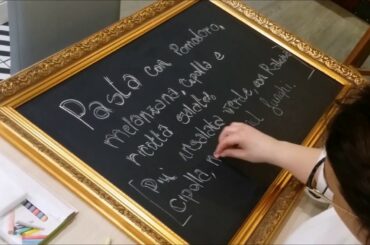 Pasta con Pomodoro,
melanzana, cipolla e
ricotta salata.
[Più insalata verde, con Radicchio
cipolla, funghi.